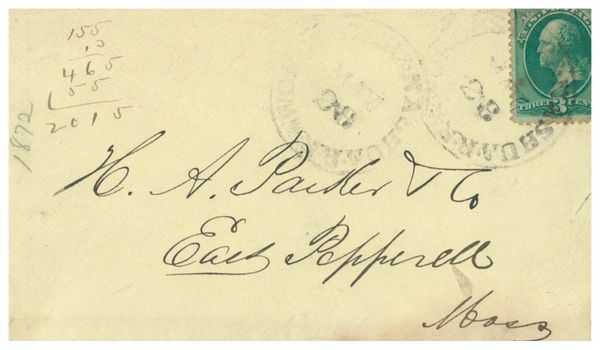 155
465
55
2015
1872
28
28
THREE 3 CENTS
H. A. Parker & Co
East Pepperell
Mass